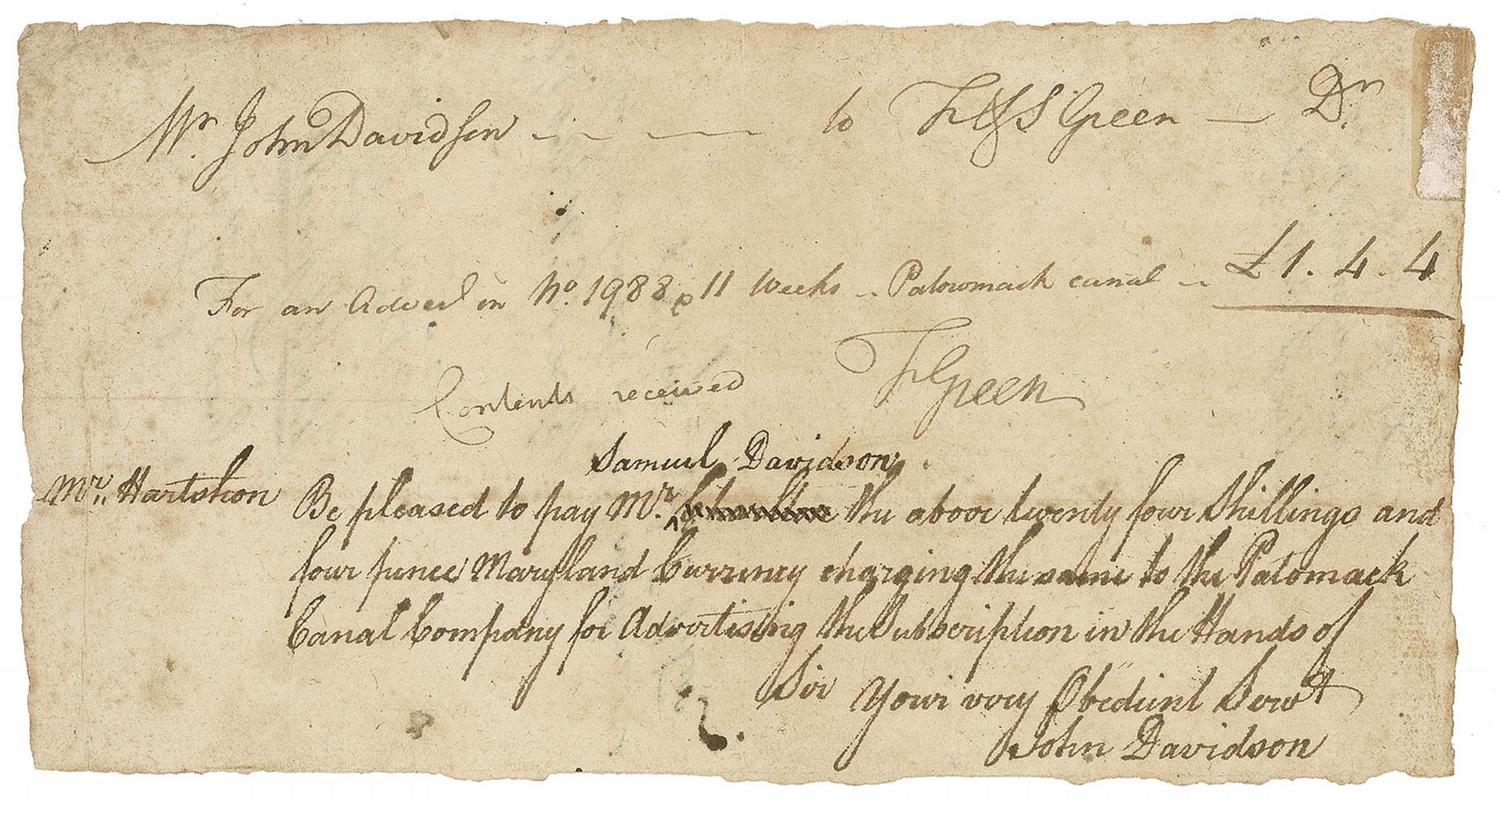 Mr. John Davidson to F & S Green Dr.
For an Advert in No. 1988 p 11 Weeks Patowmack canal £1.4.4
Contents received F Green
Samuel Davidson
Mr. Hartshon Be pleased to pay Mr. ^ the above twenty four Shillings and
four pence Maryland Currency charging the same to the Patomack
Canal Company for Advertising the Subscription in the Hands of
Sir Your very Obedient Servt
John Davidson